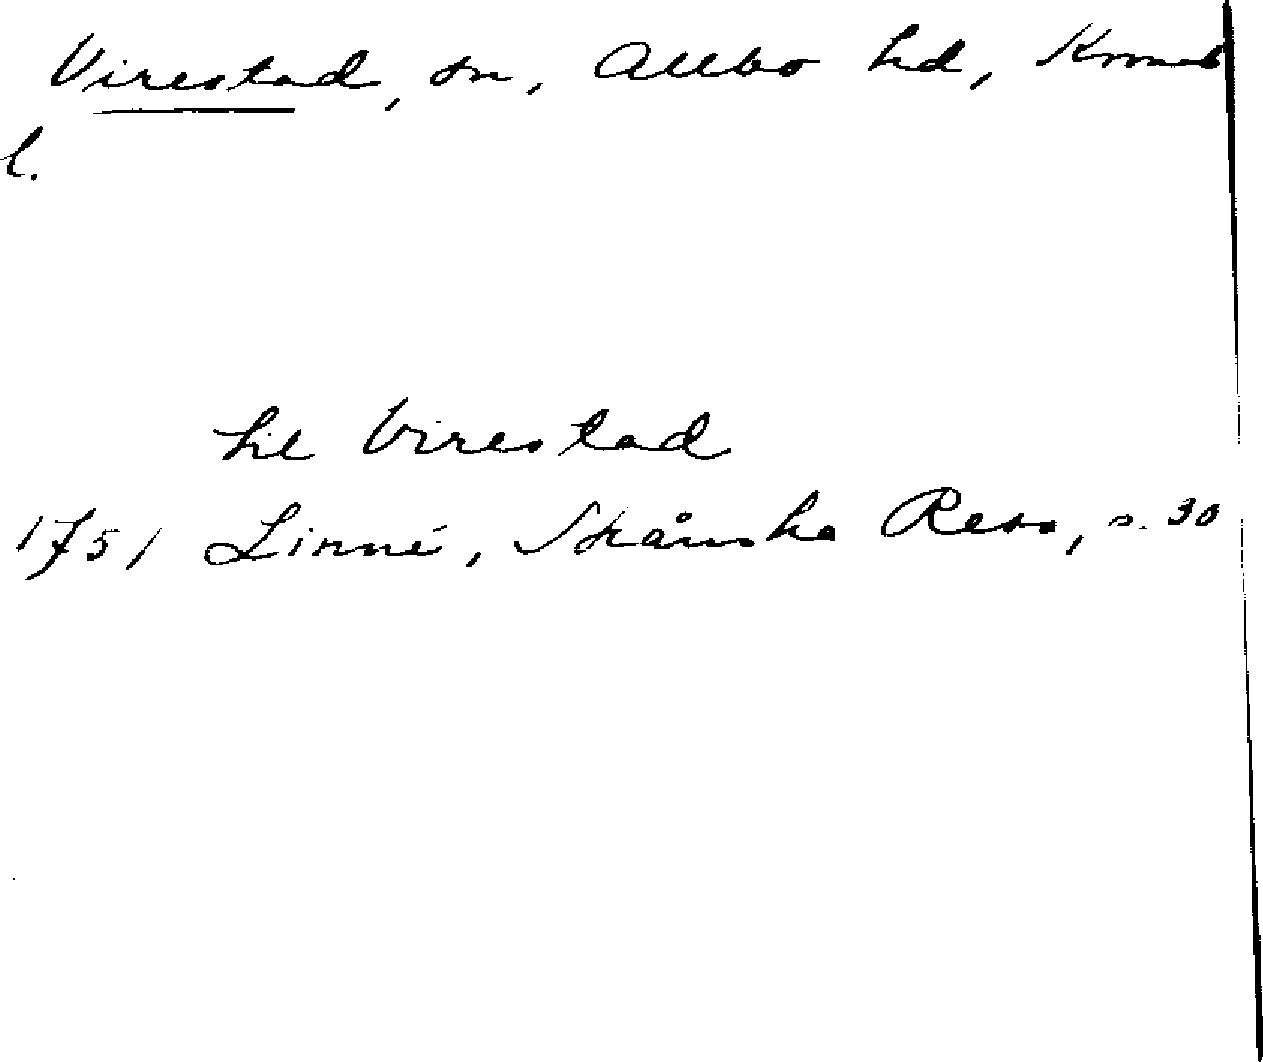 Virestad, sn, Allbo hd, Kronob
l.
til Virestad
1751 Linné, Skånska Resa, s. 30